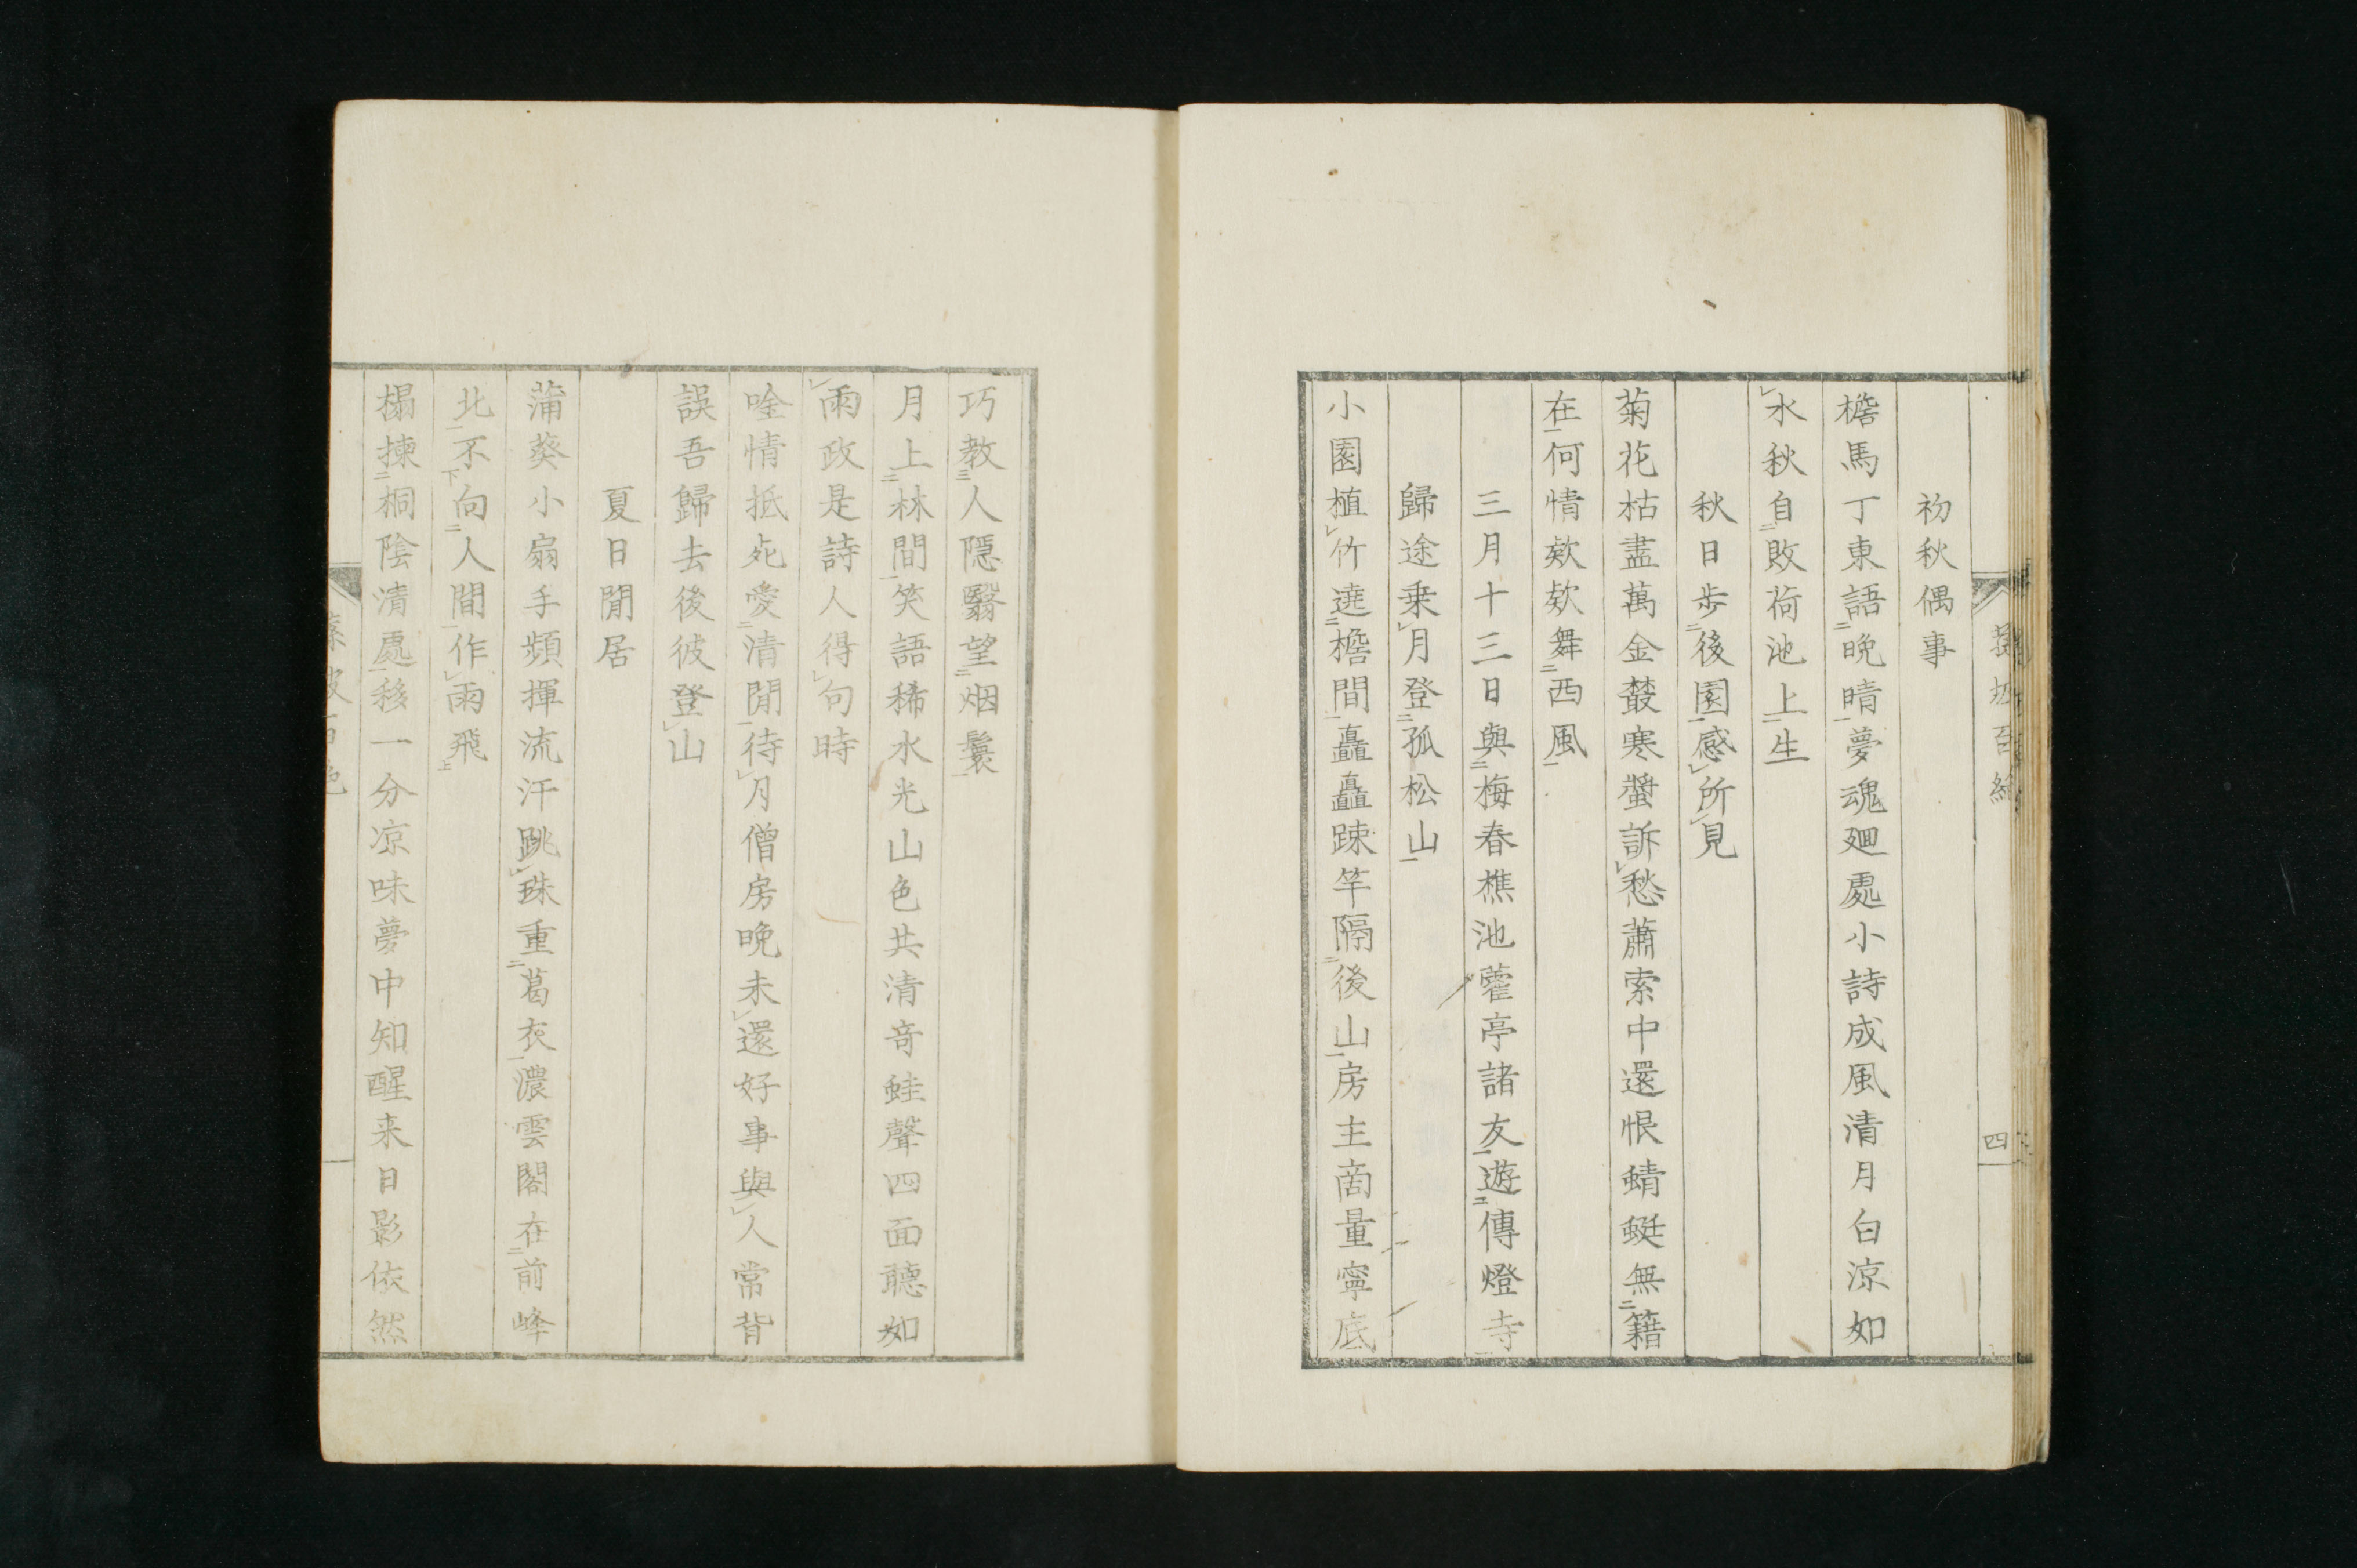 初秋偶事
檐馬丁東語晩晴夢魂廻處小詩成風清月白涼如
水秋自敗荷池上生
秋日歩後園感所見
菊花枯盡萬金叢寒螿訴愁蕭索中還恨蜻蜓無籍
在何情欸欸舞西風
三月十三日與梅春樵池藿亭諸友遊傳燈寺
歸途乗月登孤松山
小園植竹遶檐間矗矗踈竿隔後山房主啇量寧底
四
巧教人隠翳望烟鬟
月上林間笑語稀水光山色共清竒蛙聲四面聽如
雨政是詩人得句時
唫情抵死愛清閒待月僧房晩未還好事與人常背
誤吾歸去後彼登山
夏日閒居
蒲葵小扇手頻揮流汗跳珠重葛衣濃雲閣在前峰
北不向人間作雨飛
榻揀桐陰清處移一分凉味夢中知醒来日影依然